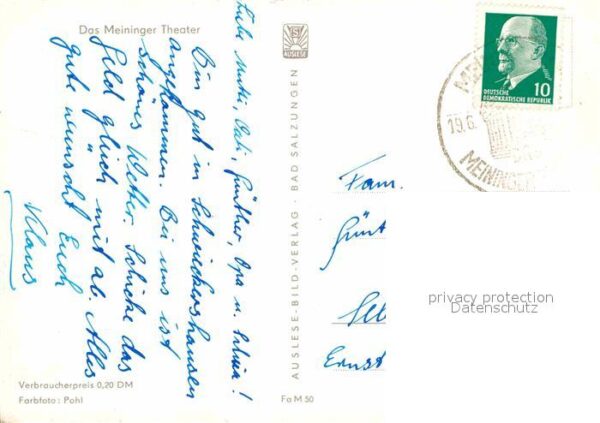 Das Meininger Theater
Liebe Mutti, Vati, Günther, Opa u. Silvia!
Bin gut in Schwickershausen
angekommen. Bei uns ist
schönes Wetter. Schicke das
Geld gleich mit ab. Alles
gute wünscht Euch
Klaus
Verbraucherpreis 0,20 DM
Farbfoto: Pohl
AUSLESE
AUSLESE-BILD-VERLAG · BAD SALZUNGEN
Fa M 50
DEUTSCHE
DEMOKRATISCHE REPUBLIK
10
19.6.
MEININGEN
Fam.
Günt
Ernst
privacy protection
Datenschutz